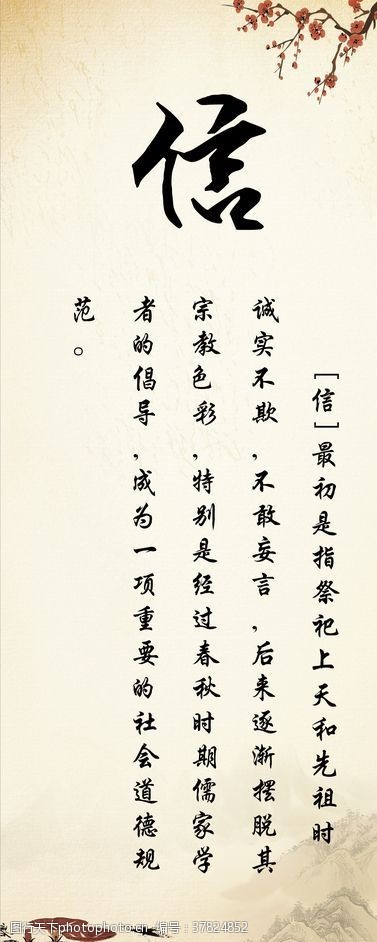 信
[信]最初是指祭祀上天和先祖时
诚实不欺,不敢妄言,后来逐渐摆脱其
宗教色彩,特别是经过春秋时期儒家学
者的倡导,成为一项重要的社会道德规
范。
图行天下photophoto.cn 编号:37824852